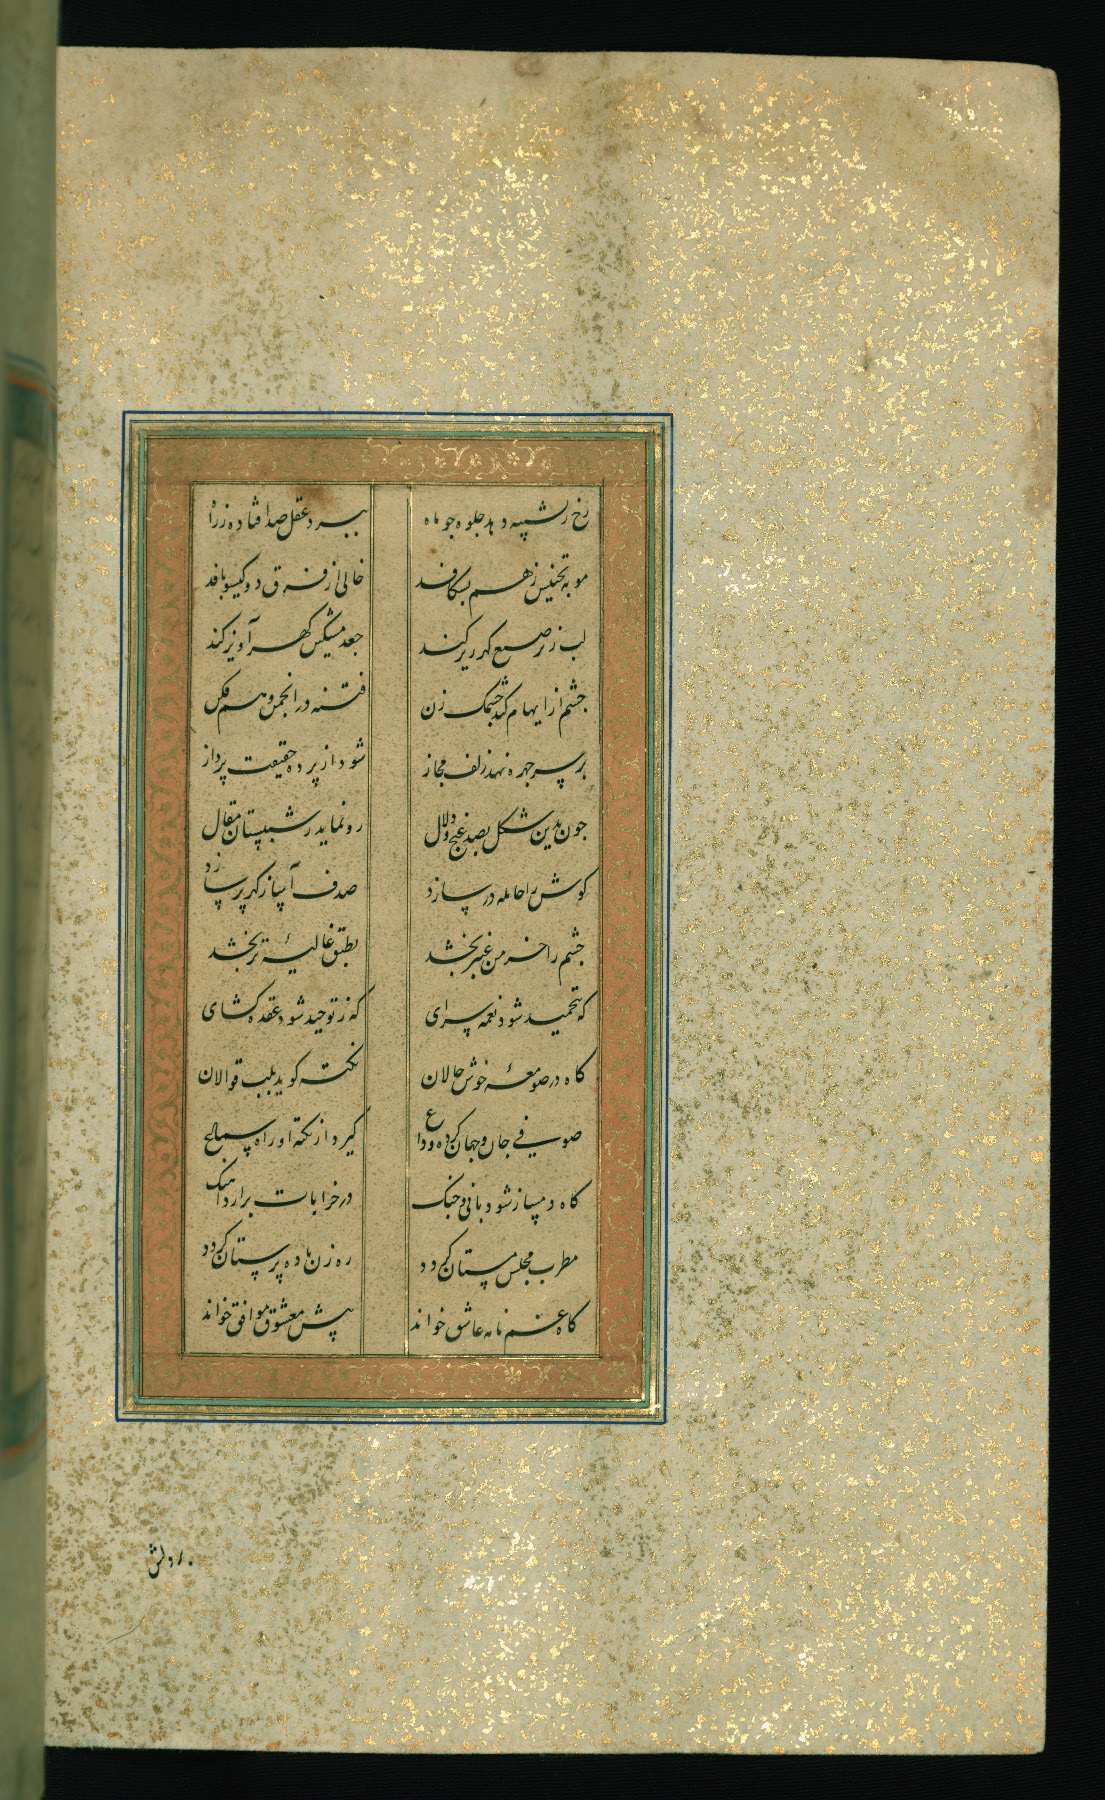 رخ ز تشبیه دهد جلوه جو ماه ببرد عقل صد افتاده ز راه
مو به تجنیس ز هم بشکافد خالی از فرق دو کیسو بافد
لب ز ترصیع کهر ریز کند جعد مشکین کهر آویز کند
جشم از ایهام کند جشمک زن فتنه در انجمن وهم فکن
بر سر جهره نهد زلف مجاز شود از پرده حقیقت پرداز
جون بدین شکل بصد غنج و دلال رو نماید ز شبستان مقال
کوش را حامله در سازد صدف آسا ز کهر پر سازد
جشم را خرمن عنبر بخشد بطبق غالیهٔ تر بخشد
که بتحمید شود نغمه سرای که ز توحید شود عقده کشای
کاه در صومعهٔ خوش حالان نکته کوید بلب قوالان
صوفی جان و جهان کرده وداع کیرد از نکته او راه سماع
کاه دمساز شود با نی و جنک در خرابات برآرد آهنک
مطرب مجلس مستان کردد ره زن باده پرستان کردد
کاه غم نامه عاشق خواند پیش معشوق موافق خواند
بر دلش